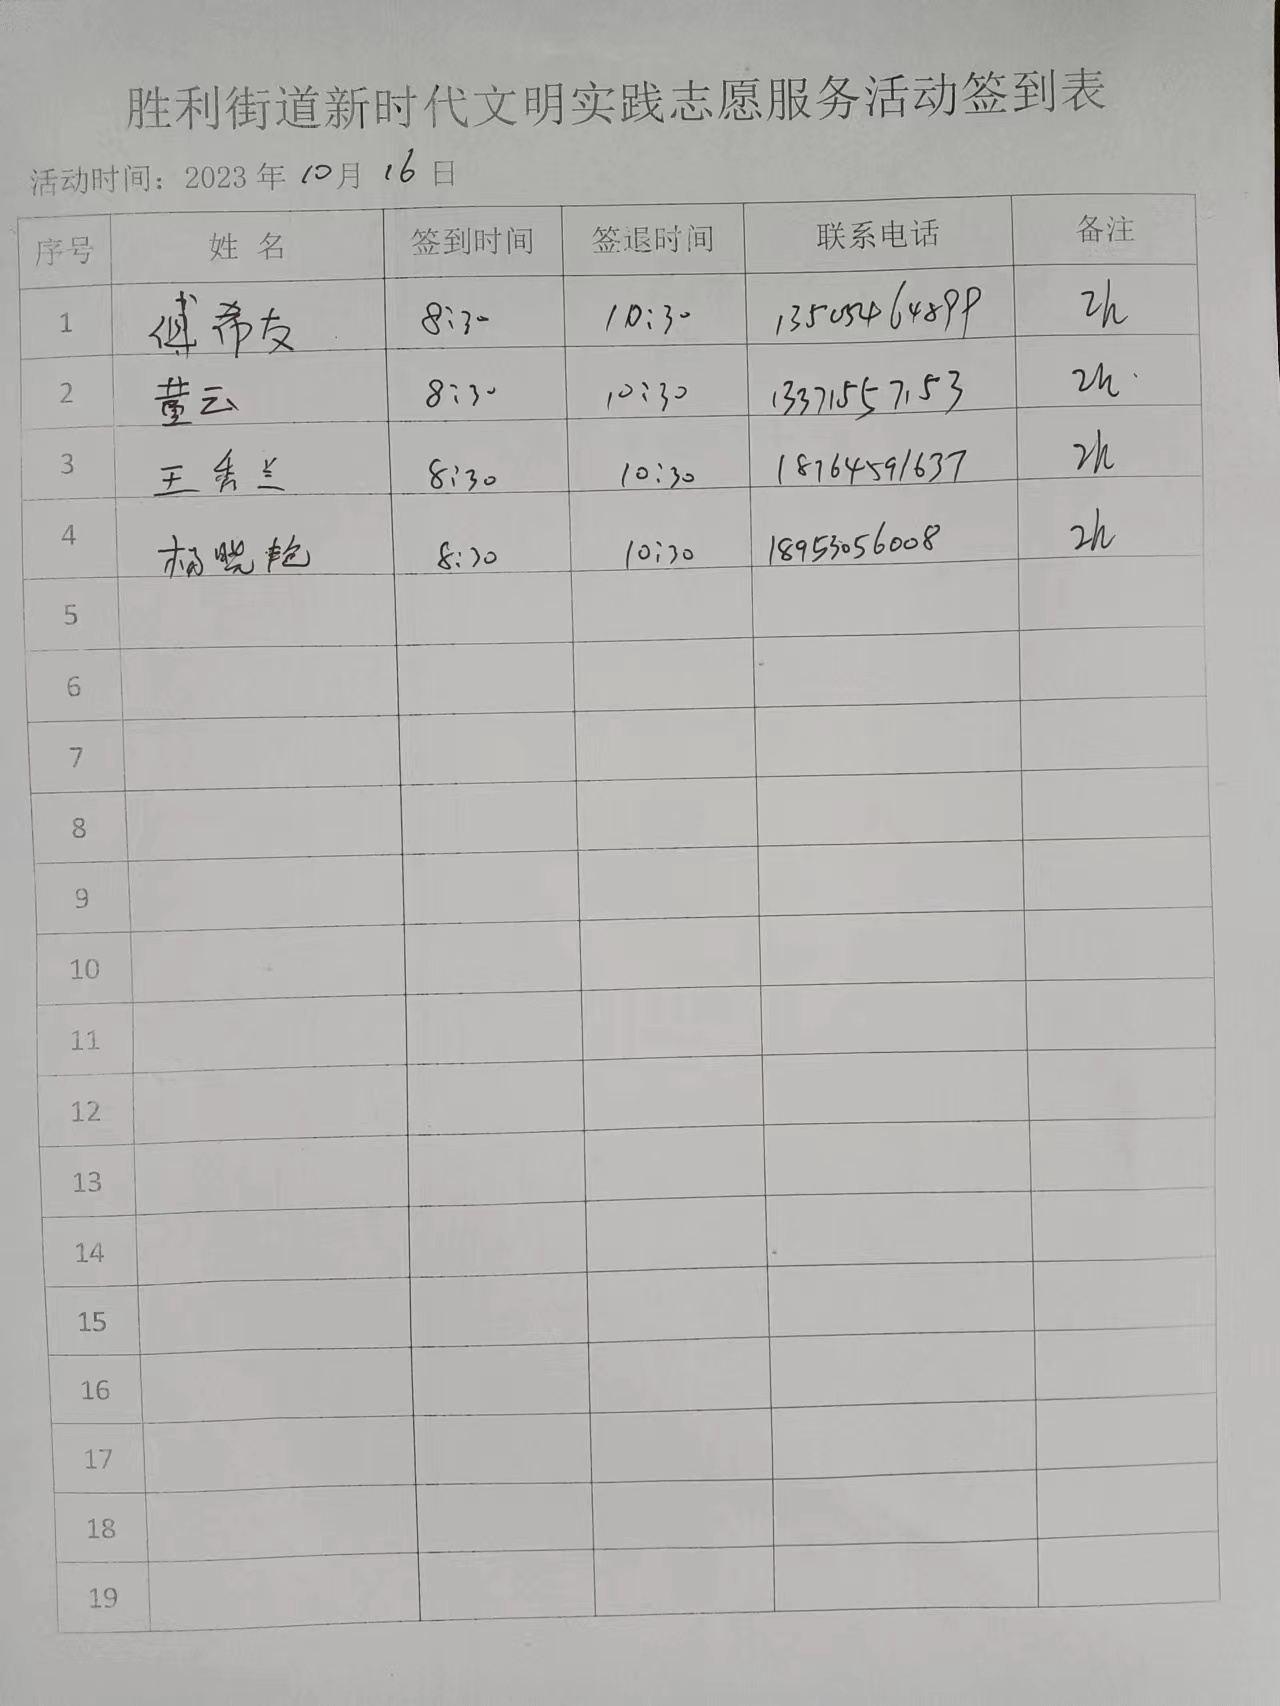 胜利街道新时代文明实践志愿服务活动签到表
活动时间：2023年 10月 16日
序号 姓名 签到时间 签退时间 联系电话 备注
1 傅希友 8:30 10:30 13505464899 2h
2 董云 8:30 10:30 13371557153 2h
3 王秀兰 8:30 10:30 18764591637 2h
4 杨晓艳 8:30 10:30 18953056008 2h
5
6
7
8
9
10
11
12
13
14
15
16
17
18
19